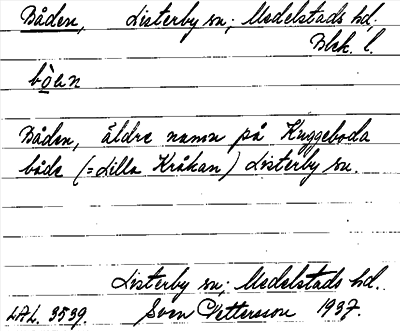 Båden, Listerby sn; Medelstads hd.
Blek. l.
bòen
Båden, äldre namn på Kuggeboda
både (= Lilla Kråkan) Listerby sn.
Listerby sn; Medelstads hd.
LAL. 3539. Sven Pettersson 1937.